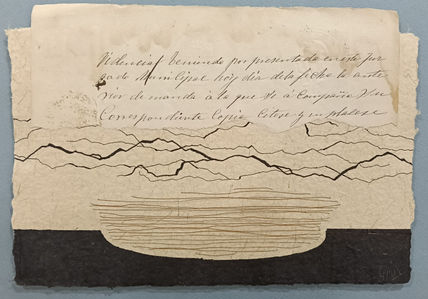 Videncia/ Teniendo por presentada en este Juz
gado Municipal hoy dia de la fecha la ante
rior demanda á la que se á Compaña su
Correspondiente Copia Citese y emplasese